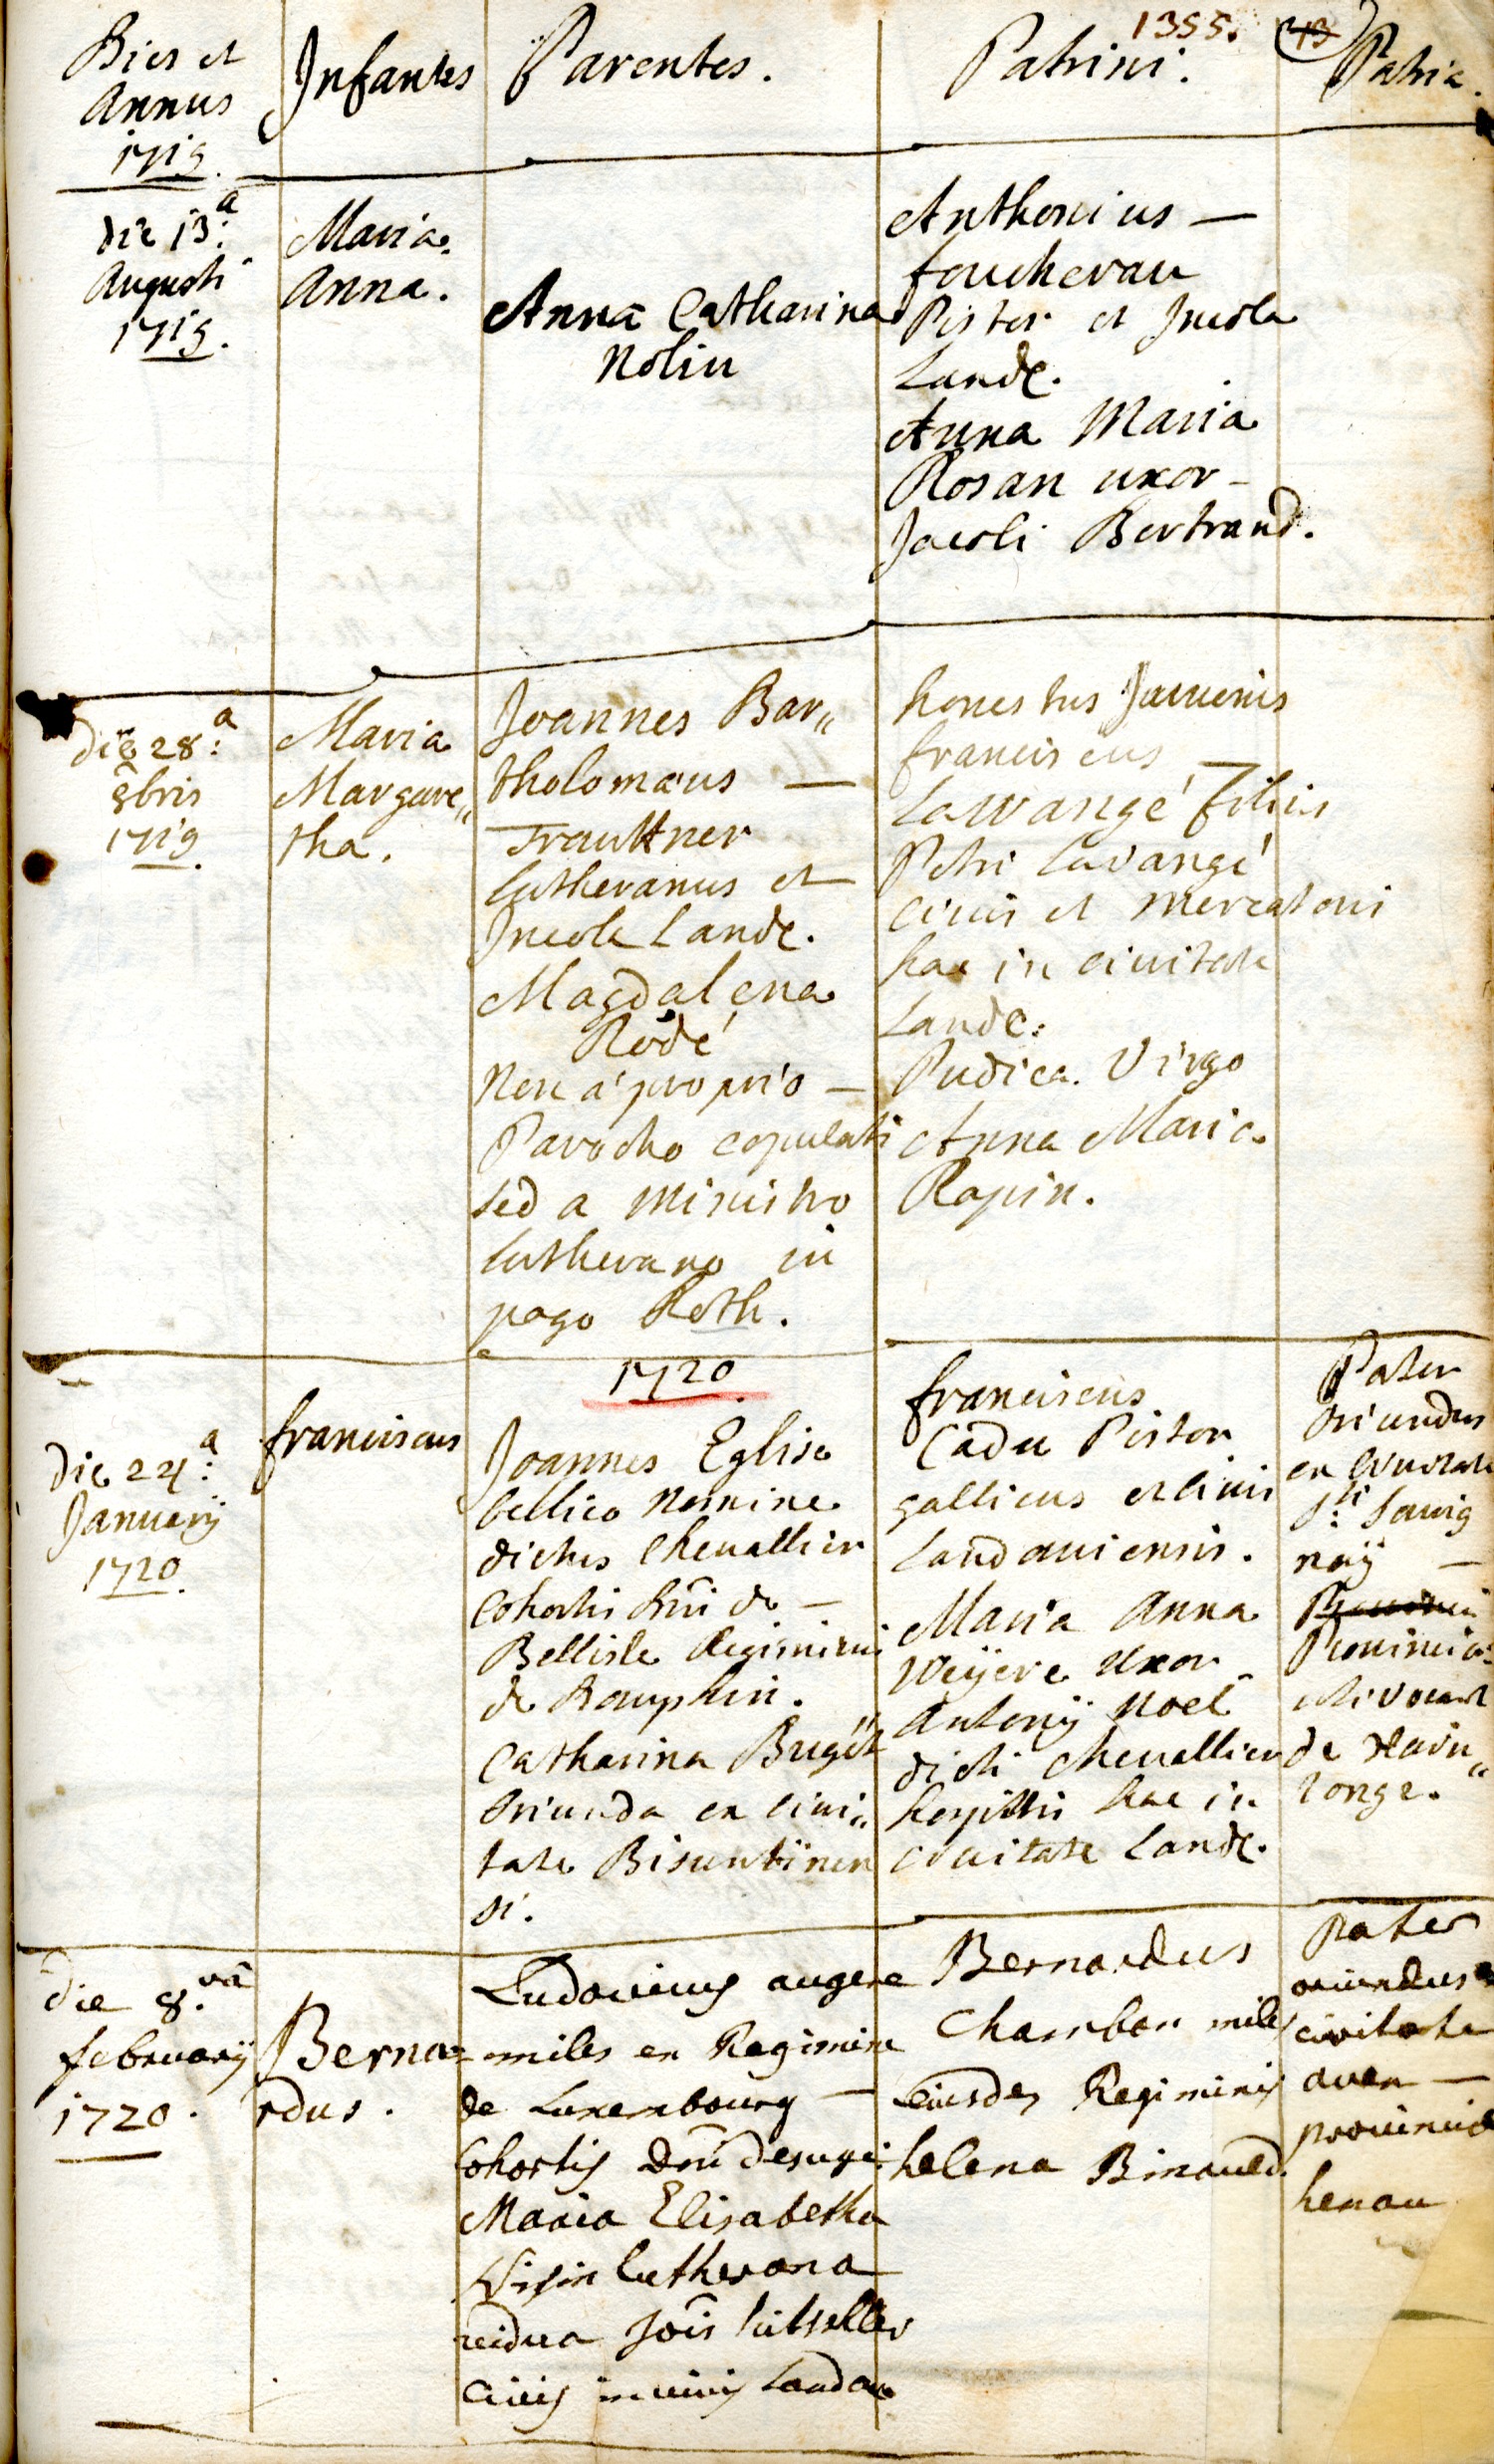 1355.
43
Dies et
Annus
1719.
Infantes
Parentes.
Patrini.
Patria.
die 13.a
Augusti
1719.
Maria
Anna.
Anna Catharina
Nolin
Anthonius —
foucherau
Pistor et Incola
Landc.
Anna Maria
Rosan uxor –
Jacobi Bertrand.
die 28.a
8bris
1719.
Maria
Margare„
tha.
Joannes Bar„
tholomæus —
Trauttner
Lutheranus et
Incola Landc.
Magdalena
Rodé
Non a proprio —
Parocho copulati
sed a Ministro
Lutherano in
pago Roth.
honestus Juvenis
franciscus —
Lavvangé filius
Petri Lavangé
Civis et Mercatoris
hac in civitate
Landc:
Pudica Virgo
Anna Maria
Rapin.
1720
die 24.a
Januarij
1720.
franciscus
Joannes Eglise
bellico Nomine
dictus Chevallier
Cohortis Dni de —
Bellisle Regiminis
de Dauphin.
Catharina Bugöt
Oriunda ex civi„
tate Bisuntinen
si.
franciscus
Cadu Pistor
gallicus et civis
Landaviensis.
Maria Anna
Weÿere Uxor
Antonÿ Noel
dicti Chevallier
hospitis hac in
civitate Landc.
Pater
oriundus
ex Civitate
S.ti Savig
naÿ —
Provincia
de Hain„
Die 8.va
februarij
1720.
Berna=
rdus.
Ludovicus augere
miles ex Regimine
de Luxembourg —
Cohortis Dni
Maria Elisabetha
Lutherana
vidua Jois
Civis in civis Landau
Bernardus
Chambon miles
eiusdem Regiminis
helena Binaued.
Pater
oriundus
civitate
aven —
provincia
henau